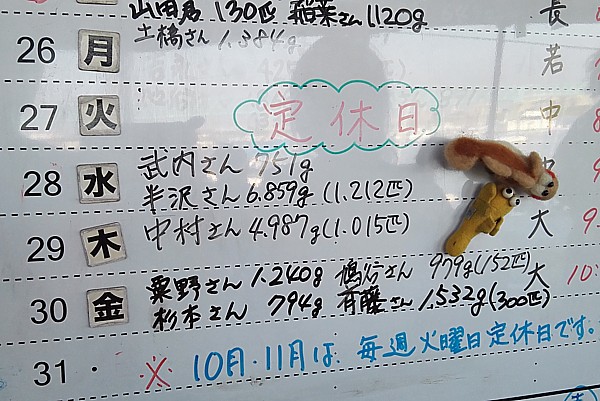 山田君 130匹 稲葉さん 1120g 長
26 月 土橋さん 1.384g 若
27 火 定休日 中 8
28 水 武内さん 751g 中 9
半沢さん 6.859g (1.212匹)
29 木 中村さん 4.987g (1.015匹) 大 9.
30 金 粟野さん 1.240g 979g (152匹) 大 10:
杉本さん 794g 斉藤さん 1.532g (300匹)
31 ・ ※ 10月・11月は、毎週火曜日定休日です。